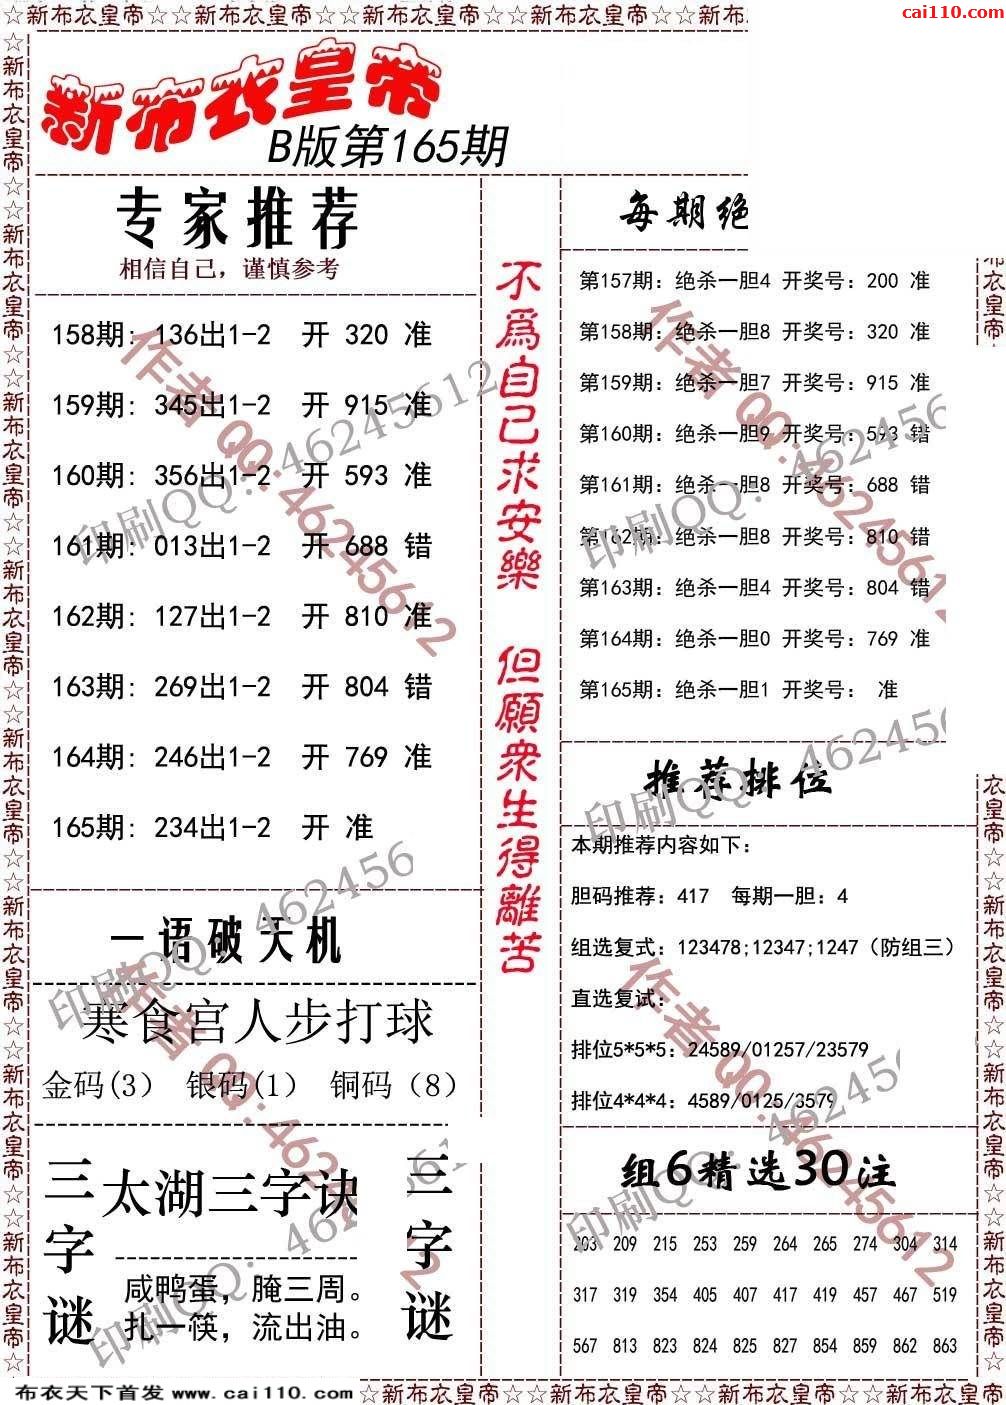 ☆新布衣皇帝☆☆新布衣皇帝☆☆新布衣皇帝☆☆新布衣皇帝☆☆新布衣
cai110.com
新布衣皇帝
B版第165期
专家推荐
相信自己，谨慎参考
158期: 136出1-2 开 320 准
159期: 345出1-2 开 915 准
160期: 356出1-2 开 593 准
161期: 013出1-2 开 688 错
162期: 127出1-2 开 810 准
163期: 269出1-2 开 804 错
164期: 246出1-2 开 769 准
165期: 234出1-2 开 准
一语破天机
寒食宫人步打球
金码(3) 银码(1) 铜码（8）
三字谜
太湖三字诀
咸鸭蛋，腌三周。
扎一筷，流出油。
三字谜
不為自己求安樂 但願衆生得離苦
每期绝
第157期: 绝杀一胆4 开奖号: 200 准
第158期: 绝杀一胆8 开奖号: 320 准
第159期: 绝杀一胆7 开奖号: 915 准
第160期: 绝杀一胆9 开奖号: 593 错
第161期: 绝杀一胆8 开奖号: 688 错
第162期: 绝杀一胆8 开奖号: 810 错
第163期: 绝杀一胆4 开奖号: 804 错
第164期: 绝杀一胆0 开奖号: 769 准
第165期: 绝杀一胆1 开奖号: 准
推荐排位
本期推荐内容如下:
胆码推荐: 417 每期一胆: 4
组选复式: 123478;12347;1247（防组三）
直选复试:
排位5*5*5: 24589/01257/23579
排位4*4*4: 4589/0125/3579
组6精选30注
203 209 215 253 259 264 265 274 304 314
317 319 354 405 407 417 419 457 467 519
567 813 823 824 825 827 854 859 862 863
作者QQ:46245612
印刷QQ: 46245612
布衣天下首发 www.cai110.com
☆新布衣皇帝☆☆新布衣皇帝☆☆新布衣皇帝☆☆新布衣皇帝☆